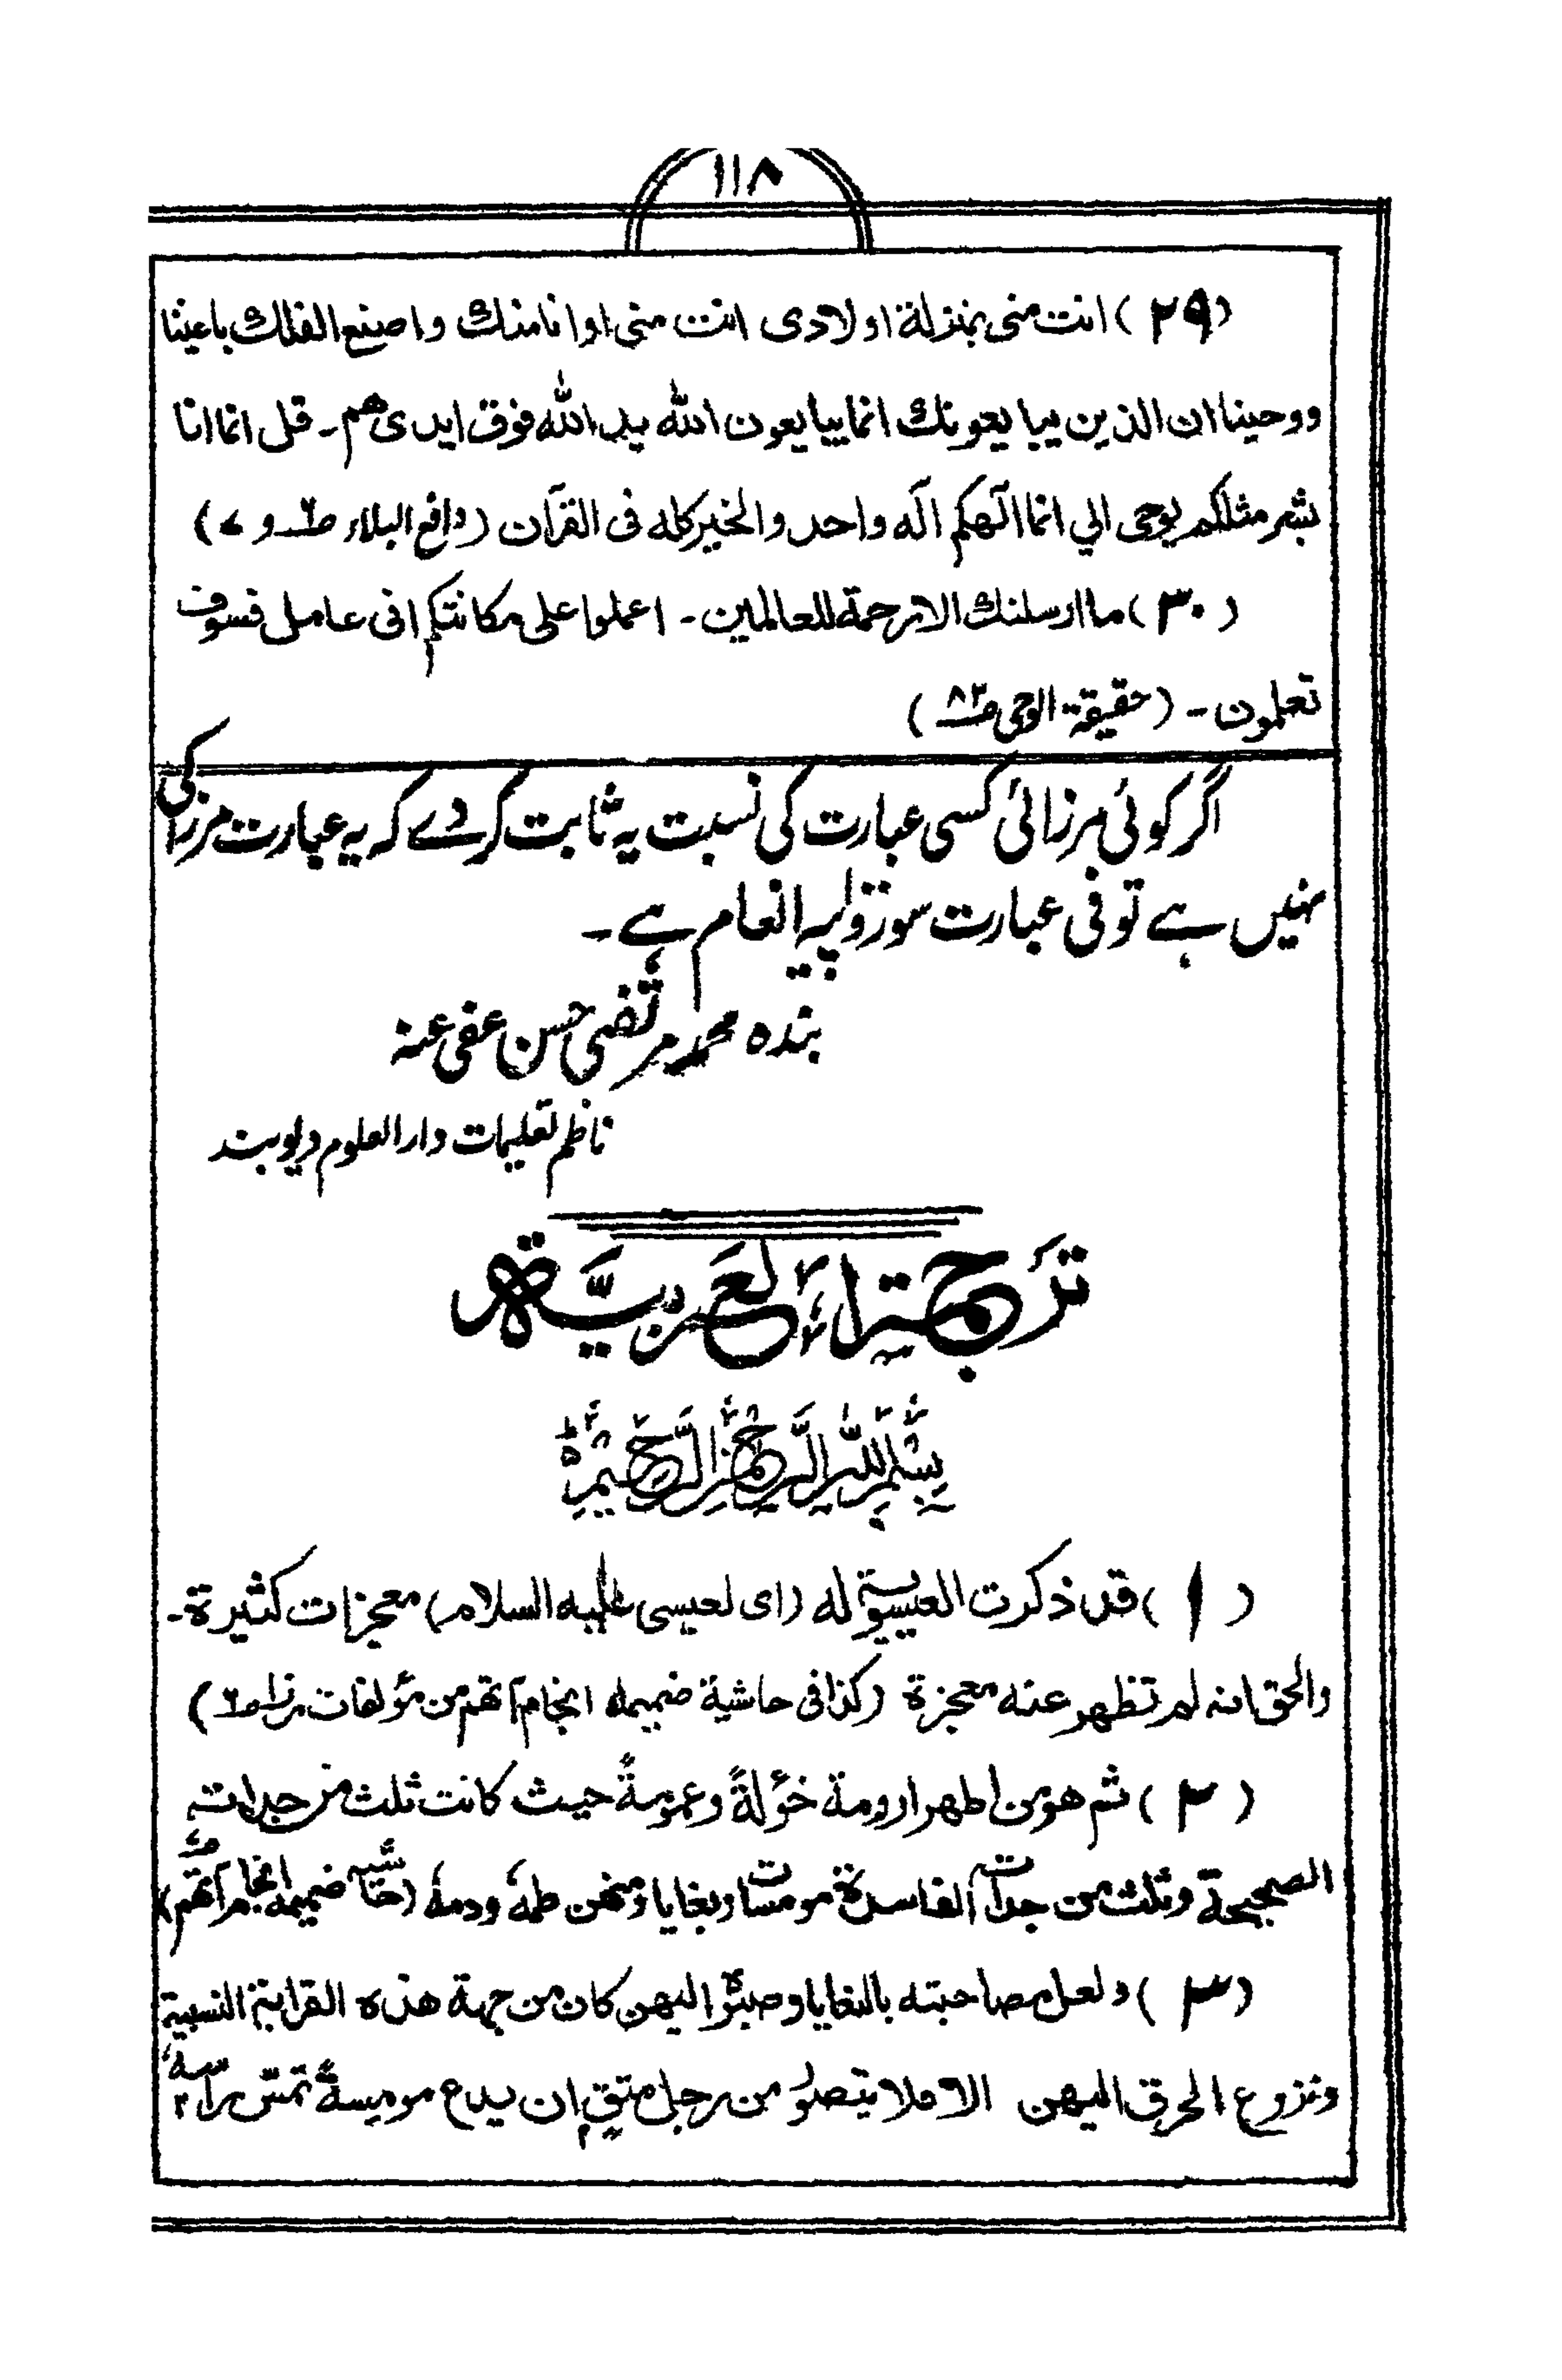 ۱۱۸
(۲۹) انت منی بمنزلة اولادی انت منی اوانا منك واصنع الفلك باعیننا
ووحینا ان الذین یبا یعونك انما یبا یعون الله ید الله فوق ایدی هم۔ قل انما انا
بشر مثلکم یوحی الی انما الٓهکم الٓه واحد والخیر کله فی القرآن (دافع البلاء ص۶ و ۷)
(۳۰) ما ارسلنك الا رحمة للعالمین۔ اعملوا علی مکانتکم انی عامل فسوف
تعلمون۔ (حقیقة الوحی ص۸۲)
اگر کوئی مرزائی کسی عبارت کی نسبت یہ ثابت کردے کہ یہ عبارت مرزا کی
نہیں ہے تو فی عبارت سو روپیہ انعام ہے۔
بندہ محمد مرتضی حسن عفی عنہ
ناظم تعلیمات دارالعلوم دیوبند
ترجمتہ العربیّة
بِسْمِ اللهِ الرَّحْمٰنِ الرَّحِيْمِ
(۱) قد ذکرت العیسویة له (ای لعیسی علیه السلام) معجزات کثیرة۔
والحق انه لم تظهر عنه معجزة (کذا فی حاشیة ضمیمه انجام آتهم من مؤلفات مرزا ص۶)
(۲) ثم هو من اطهر ارومة خؤلةً وعمومةً حیث کانت ثلث من جداته
الصحیحة وثلث من جداته الفاسدة مومسات وبغایا ومنهن طمه ودمه (حاشیه ضمیمه انجام آتهم ص)
(۳) ولعل مصاحبته بالبغایا وصبوّه الیهن کان من جهة هذه القرابة النسبیة
ونزوع العرق الیهن الا فلا یتصور من رجل متق ان یدع مومیسةً تمسّ راسه